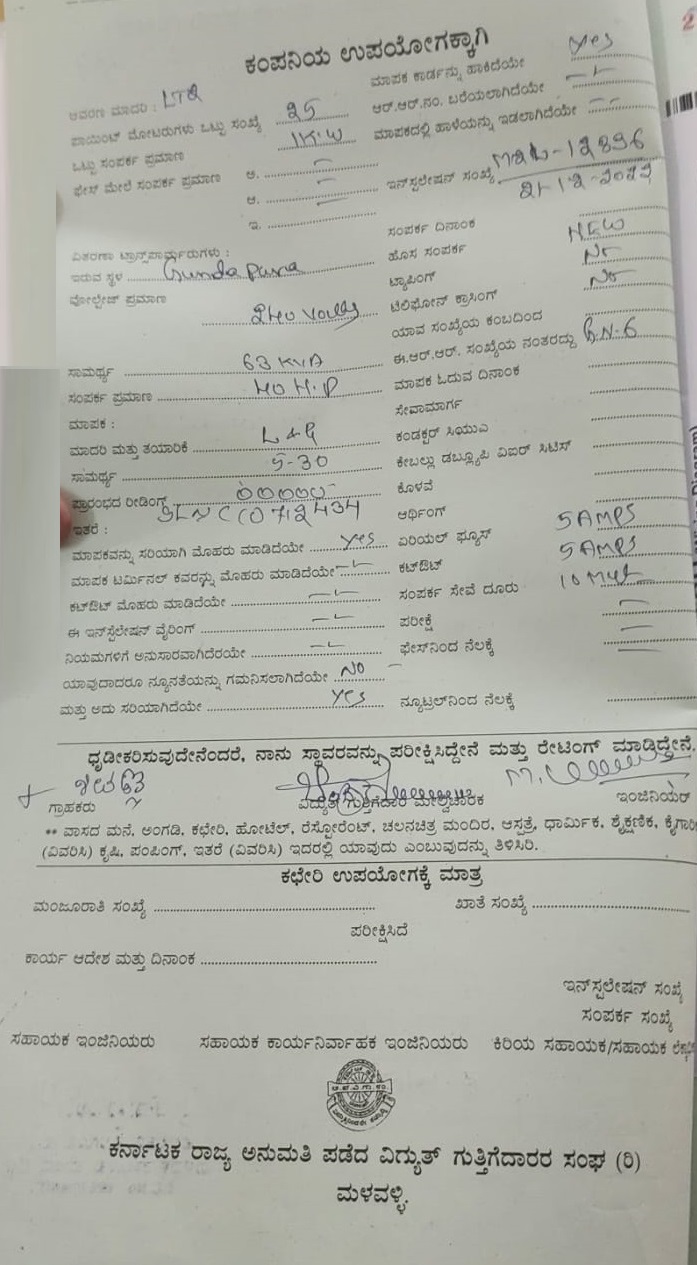 ಕಂಪನಿಯ ಉಪಯೋಗಕ್ಕಾಗಿ
ಮಾಪಕ ಕಾರ್ಡನ್ನು ಹಾಕಿದೆಯೇ Yes
ಆವರಣ ಮಾದರಿ : LT2
ಆರ್.ಆರ್.ನಂ. ಬರೆಯಲಾಗಿದೆಯೇ
ಪಾಯಿಂಟ್ ಮೋಟರುಗಳು ಒಟ್ಟು ಸಂಖ್ಯೆ 25
ಮಾಪಕದಲ್ಲಿ ಹಾಳೆಯನ್ನು ಇಡಲಾಗಿದೆಯೇ
ಒಟ್ಟು ಸಂಪರ್ಕ ಪ್ರಮಾಣ 1KW
ಫೇಸ್ ಮೇಲೆ ಸಂಪರ್ಕ ಪ್ರಮಾಣ ಅ.
ಇನ್‌ಸ್ಪಲೇಷನ್ ಸಂಖ್ಯೆ
ಆ.
ಇ.
ಸಂಪರ್ಕ ದಿನಾಂಕ
ವಿತರಣಾ ಟ್ರಾನ್ಸ್‌ಫಾರ್ಮರುಗಳು :
ಹೊಸ ಸಂಪರ್ಕ NEW
ಇರುವ ಸ್ಥಳ
ಟ್ಯಾಪಿಂಗ್ No
ವೋಲ್ಟೇಜ್ ಪ್ರಮಾಣ 240 Volts
ಟೆಲಿಫೋನ್ ಕ್ರಾಸಿಂಗ್ No
ಯಾವ ಸಂಖ್ಯೆಯ ಕಂಬದಿಂದ
ಸಾಮರ್ಥ್ಯ 63 KVA
ಈ.ಆರ್.ಆರ್. ಸಂಖ್ಯೆಯ ನಂತರದ್ದು
ಸಂಪರ್ಕ ಪ್ರಮಾಣ 40 H.P
ಮಾಪಕ ಓದುವ ದಿನಾಂಕ
ಮಾಪಕ :
ಸೇವಾಮಾರ್ಗ
ಮಾದರಿ ಮತ್ತು ತಯಾರಿಕೆ L&G
ಕಂಡಕ್ಟರ್ ಸಿಯುಎ
ಸಾಮರ್ಥ್ಯ 5-30
ಕೇಬಲ್ಲು ಡಬ್ಲ್ಯೂಪಿ ಎಐರ್ ಸಿಟಿಸ್
ಪ್ರಾರಂಭದ ರೀಡಿಂಗ್ 00000
ಕೊಳವೆ
ಇತರೆ :
ಆರ್ಥಿಂಗ್
ಮಾಪಕವನ್ನು ಸರಿಯಾಗಿ ಮೊಹರು ಮಾಡಿದೆಯೇ Yes
ಏರಿಯಲ್ ಫ್ಯೂಸ್ 5 AMPS
ಮಾಪಕ ಟರ್ಮಿನಲ್ ಕವರನ್ನು ಮೊಹರು ಮಾಡಿದೆಯೇ
ಕಟ್‌ಔಟ್ 5 AMPS
ಕಟ್‌ಔಟ್ ಮೊಹರು ಮಾಡಿದೆಯೇ
ಸಂಪರ್ಕ ಸೇವೆ ದೂರು
ಈ ಇನ್‌ಸ್ಟಲೇಷನ್ ವೈರಿಂಗ್
ಪರೀಕ್ಷೆ
ನಿಯಮಗಳಿಗೆ ಅನುಸಾರವಾಗಿದೆರಯೇ
ಫೇಸ್‌ನಿಂದ ನೆಲಕ್ಕೆ
ಯಾವುದಾದರೂ ನ್ಯೂನತೆಯನ್ನು ಗಮನಿಸಲಾಗಿದೆಯೇ NO
ಮತ್ತು ಅದು ಸರಿಯಾಗಿದೆಯೇ YES
ನ್ಯೂಟ್ರಲ್‌ನಿಂದ ನೆಲಕ್ಕೆ
ಧೃಡೀಕರಿಸುವುದೇನೆಂದರೆ, ನಾನು ಸ್ಥಾವರವನ್ನು ಪರೀಕ್ಷಿಸಿದ್ದೇನೆ ಮತ್ತು ರೇಟಿಂಗ್ ಮಾಡಿದ್ದೇನೆ.
ಗ್ರಾಹಕರು ವಿದ್ಯುತ್ ಗುತ್ತಿಗೆದಾರ ಮೇಲ್ವಿಚಾರಕ ಇಂಜಿನಿಯರ್
** ವಾಸದ ಮನೆ, ಅಂಗಡಿ, ಕಛೇರಿ, ಹೋಟೆಲ್, ರೆಸ್ಟೋರೆಂಟ್, ಚಲನಚಿತ್ರ ಮಂದಿರ, ಆಸ್ಪತ್ರೆ, ಧಾರ್ಮಿಕ, ಶೈಕ್ಷಣಿಕ,
(ವಿವರಿಸಿ) ಕೃಷಿ, ಪಂಪಿಂಗ್, ಇತರೆ (ವಿವರಿಸಿ) ಇದರಲ್ಲಿ ಯಾವುದು ಎಂಬುವುದನ್ನು ತಿಳಿಸಿರಿ.
ಕಛೇರಿ ಉಪಯೋಗಕ್ಕೆ ಮಾತ್ರ
ಮಂಜೂರಾತಿ ಸಂಖ್ಯೆ ಖಾತೆ ಸಂಖ್ಯೆ
ಪರೀಕ್ಷಿಸಿದೆ
ಕಾರ್ಯ ಆದೇಶ ಮತ್ತು ದಿನಾಂಕ
ಇನ್‌ಸ್ಪಲೇಷನ್ ಸಂಖ್ಯೆ
ಸಂಪರ್ಕ ಸಂಖ್ಯೆ
ಸಹಾಯಕ ಇಂಜಿನಿಯರು ಸಹಾಯಕ ಕಾರ್ಯನಿರ್ವಾಹಕ ಇಂಜಿನಿಯರು ಕಿರಿಯ ಸಹಾಯಕ/ಸಹಾಯಕ
ಕರ್ನಾಟಕ ರಾಜ್ಯ ಅನುಮತಿ ಪಡೆದ ವಿದ್ಯುತ್ ಗುತ್ತಿಗೆದಾರರ ಸಂಘ (ರಿ)
ಮಳವಳ್ಳಿ.